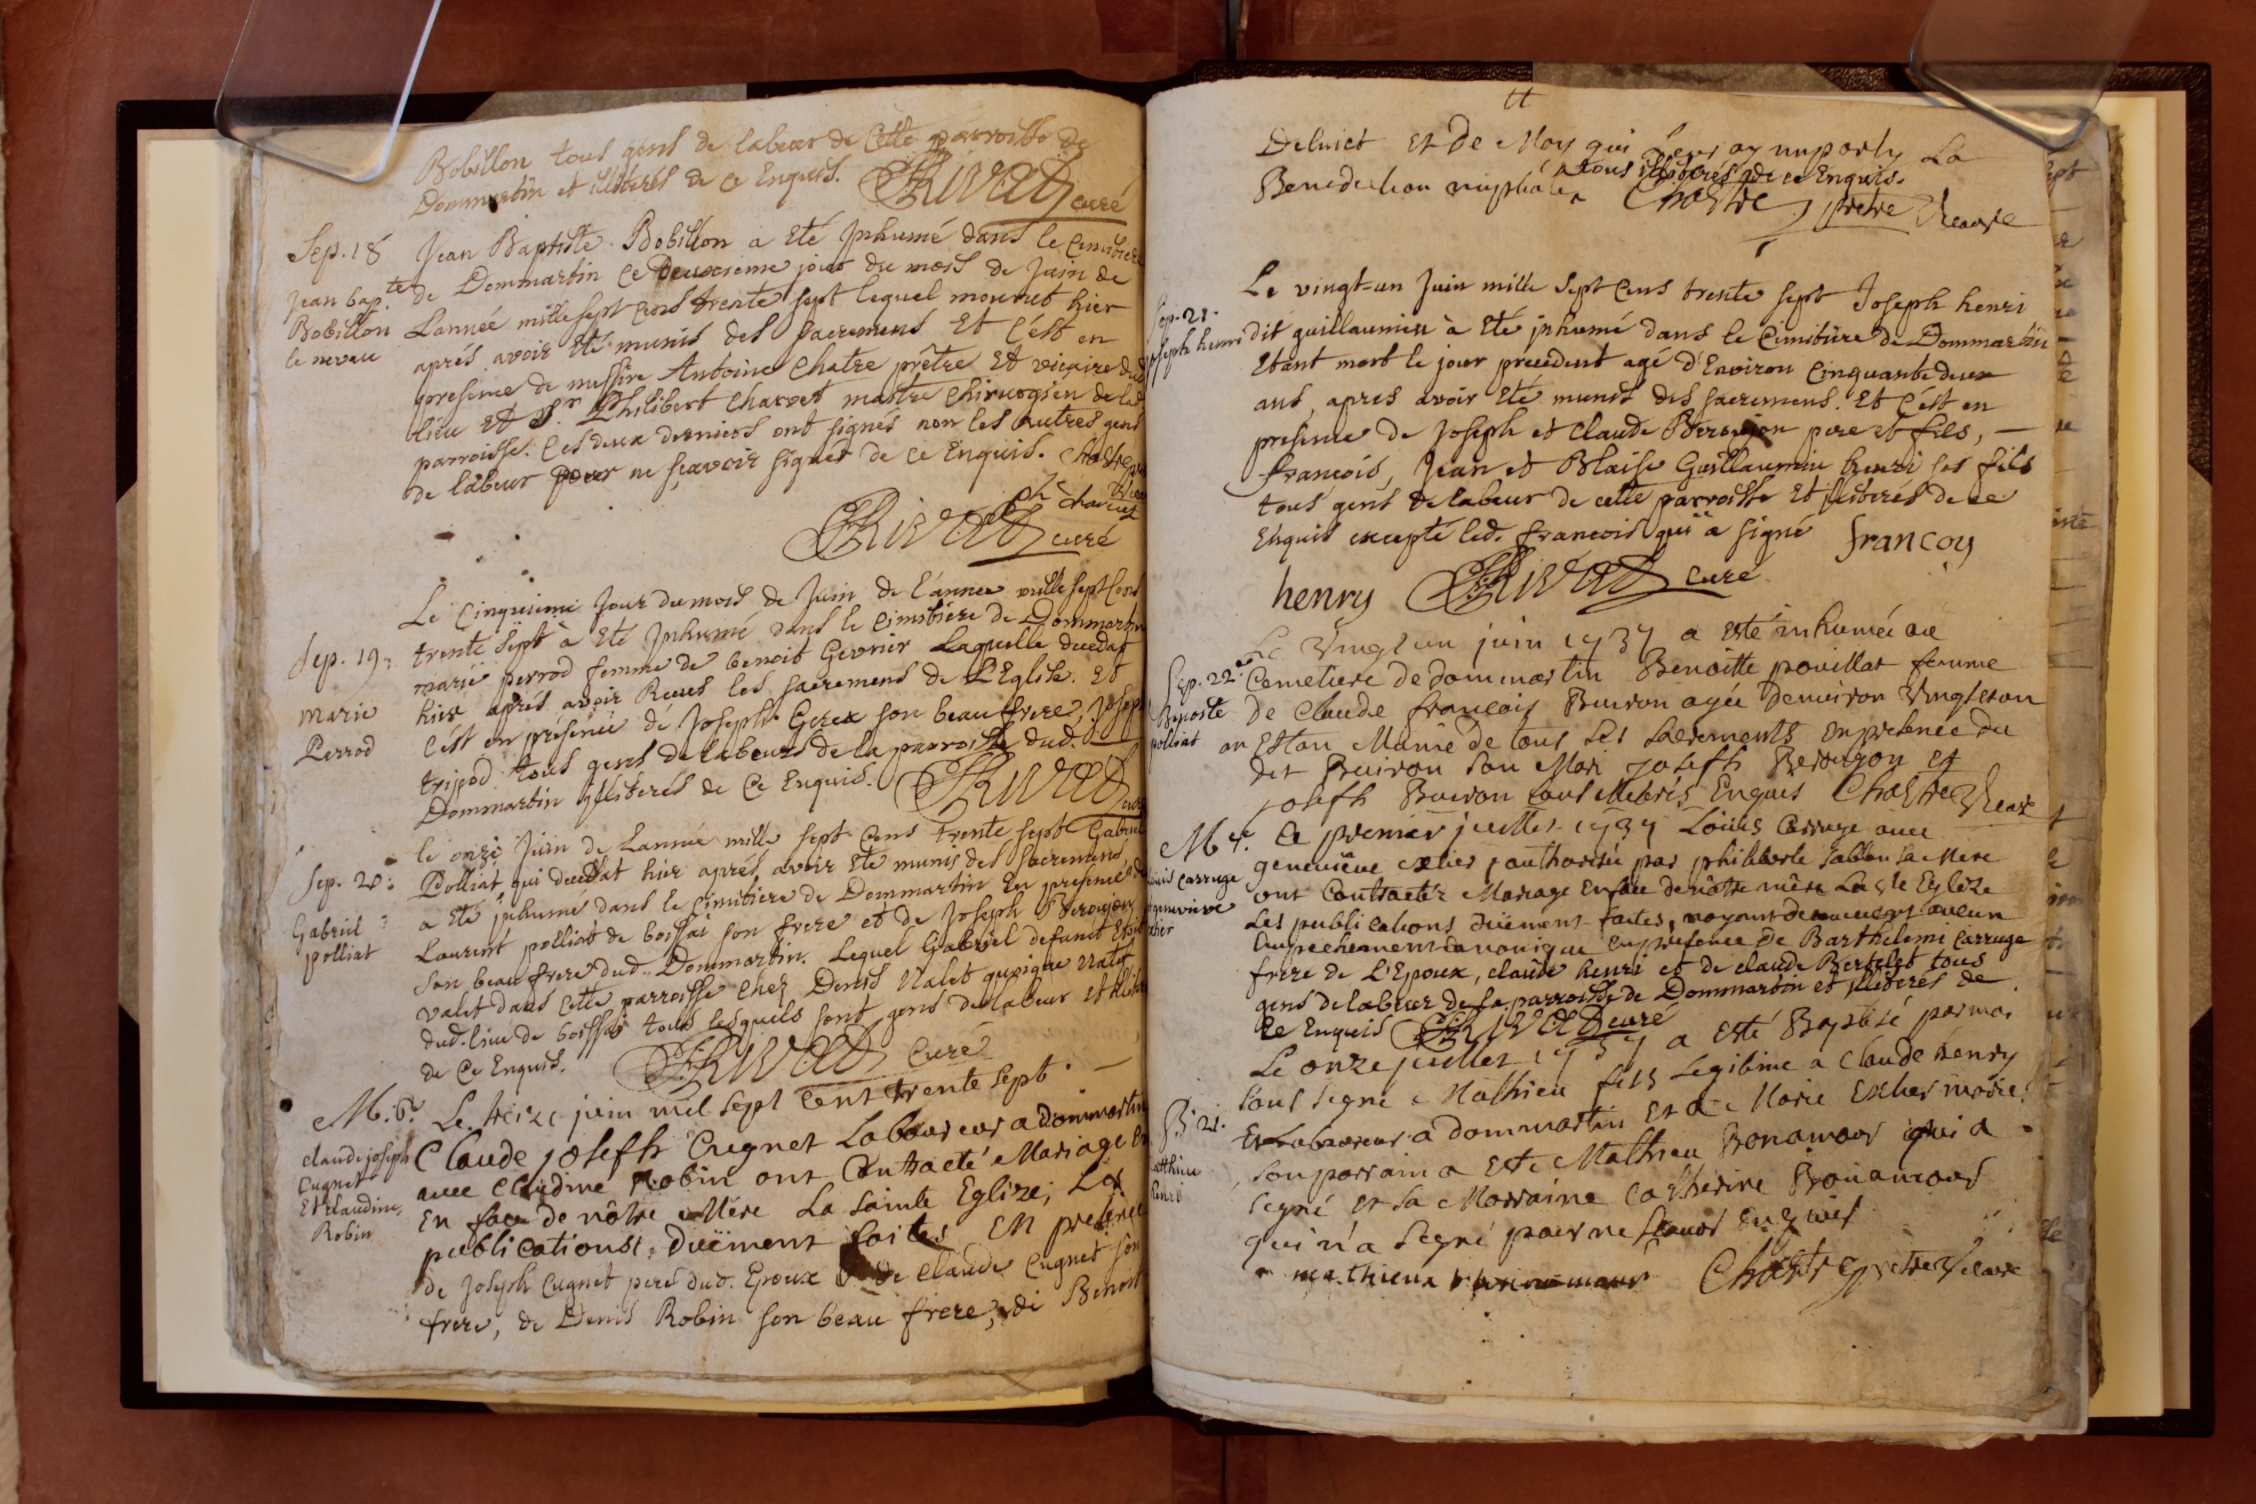 Bobillon tous gens de labeur de Cette parroisse de
Dommartin et illiterés de ce Enquis. Rivat curé
Sep. 18 Jean Baptiste Bobillon a eté Inhumé dans le Cimitiere
Jean bap.te de Dommartin ce deuxieme jour du mois de Juin de
Bobillon Lannée mille sept cens trente sept lequel mourut hier
le neveu aprés avoir eté munis des sacremens Et C'est en
presence de messire Antoine Chatre prêtre Et vicaire dud
lieu Et Sr. Philibert Charvet maitre chirurgien de lad
parroisse. Ces deux derniers ont signés non les autres gens
de labeur pour ne sçavoir signer de ce Enquis. Chastre
Ph charvet
Rivat curé
Le Cinquieme Jour du mois de Juin de l'année mille sept Cens
Sep. 19: trente sept à eté Inhumé dans le Cimitiere de Dommartin
marie perrod femme de benoit Gevrier Laquelle deceda
Marie hier aprés avoir Reçus les sacremens de L'Eglise. Et
Perrod C'est en présence de Joseph Gerex son beau frere, Joseph
tripod tous gens de labeurs de la parroisse dud.
Dommartin Illiterés de Ce Enquis. Rivat curé
le onze Juin de Lannée mille sept Cens trente sept Gabriel
Sep. 20: Polliat qui decedat hier aprés avoir eté munis des sacremens
Gabriel a eté inhumé dans le Cimitiere de Dommartin En presence de
polliat Laurent polliat de boissai son frere et de Joseph Beroujon
son beau frere dud. Dommartin. Lequel Gabriel defunct Etoit
valet dans cette parroisse chez Denis Nalet
dud. lieu de boissai tous lesquels sont gens de labeur et
de Ce Enquis. Rivat Curé
M. 6. Le treize juin mil sept cent trente sept.
claude joseph Claude joseph Cugnet Laboureur a dommartin
Cugnet avec Claudine Robin ont Contracté Mariage
Et claudine En face de nôtre Mére La sainte Eglize; Les
Robin publications, düement faites En presence
de Joseph Cugnet pere dud. Epoux de Claude Cugnet son
frere, de Denis Robin son beau frere, de Benoit
Et De Moy qui leur ay imparty La
Benediction nuptiale tous illiterés de ce Enquis.
Chastre prêtre Vicaire
Le vingt-un Juin mille sept cens trente sept Joseph henri
Sep. 21. dit guillaumin à eté inhumé dans le Cimitiere de Dommartin
Joseph henri Etant mort le jour precedent agé d'Environ Cinquante deux
ans, apres avoir eté munis des sacremens. Et C'est en
presence de Joseph et Claude Beroujon pere et fils,
françois, Jean et Blaise Guillaumin henri ses fils
tous gens de labeur de cette parroisse Et illiterés de ce
Enquis excepté led. francois qui a signé francoy
henry Rivat curé
Le Vingt un juin 1737 a esté inhumée au
Sep. 22. Cemetiere de dommartin Benoitte pouillat femme
Benoite de Claude francois Buiron agée denviron Vingt
polliat an Estan Munie de tous les sacrements en presence du
dit Buiron son Mari joseph Berougon et
joseph Buiron tous illiterés Enquis Chastre Vicaire
M 7. Le premier juillet 1737 Louis Carruge avec
louis carruge genevieve authorisée par philiberte sablon sa Mere
genevieve ont Contracter Mariage en face de nôtre mére La ste Eglize
Les publications düement faites, nayant aucun
Empechement canonique en presence de Barthelemi Carruge
frere de L'Epoux, claude henri et de claude Bertelet tous
gens de labeur de la parroisse de Dommartin et illiterés de
ce Enquis Rivat curé
Le onze juillet 1737 a esté Baptisé par moi
sous signé Mathieu fils Legitime a Claude henry
B. 21. Laboureur a dommartin et a Marie
son parrain a esté Mathieu Bonamour qui a
signé et sa Marraine Catherine Bonamour
qui n'a signé pour ne scavoir Enquis
mathieu bonnamour Chastre prêtre Vicaire